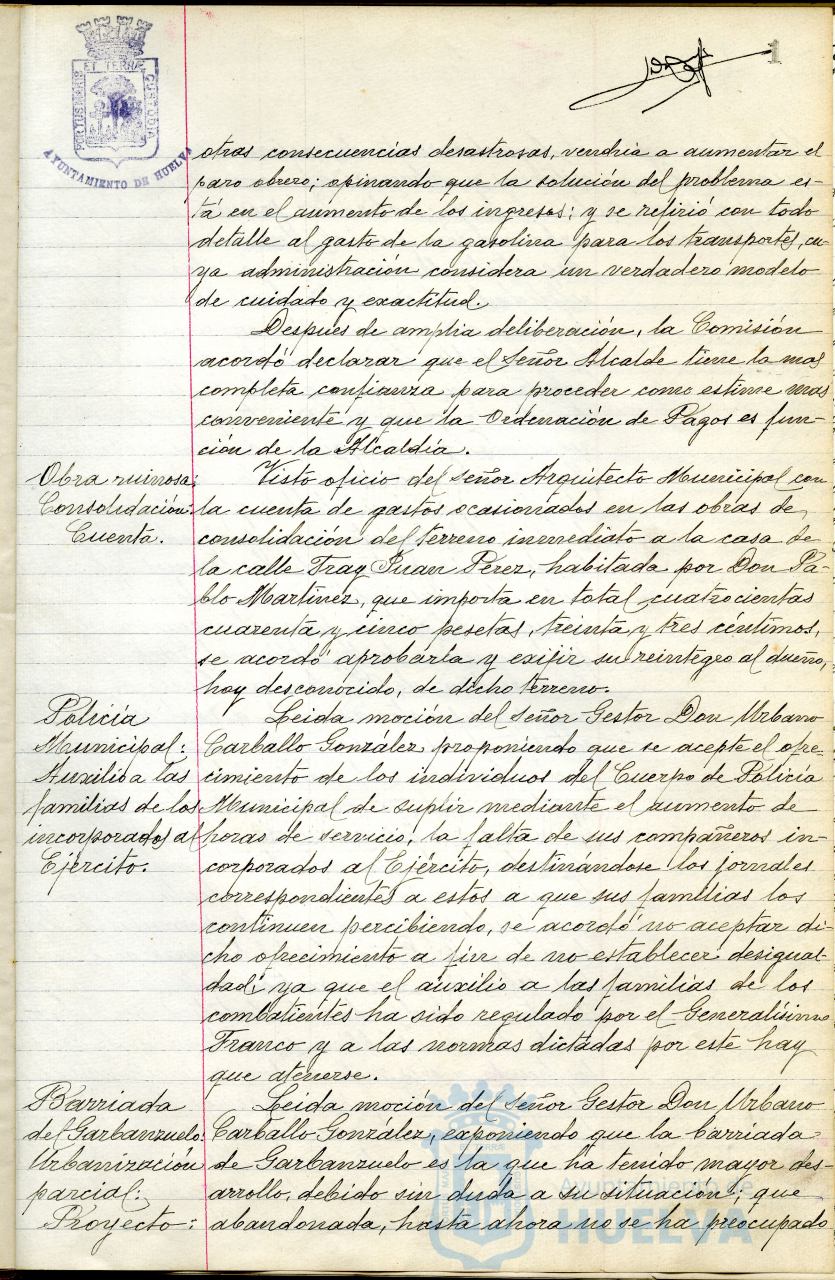 1
PORTUS MARIS ET TERRÆ CUSTODIA
AYUNTAMIENTO DE HUELVA
otras consecuencias desastrosas, vendria a aumentar el
paro obrero; opinando que la solución del problema es-
tá en el aumento de los ingresos; y se refirió con todo
detalle al gasto de la gasolina para los transportes, cu-
ya administración considera un verdadero modelo
de cuidado y exactitud.
Despues de amplia deliberación, la Comisión
acordó declarar que el Señor Alcalde tiene la mas
completa confianza para proceder como estime mas
conveniente y que la Ordenación de Pagos es fun-
ción de la Alcaldía.
Obra ruinosa:
Consolidación:
Cuenta.
Visto oficio del Señor Arquitecto Municipal con
la cuenta de gastos ocasionados en las obras de
consolidación del terreno inmediato a la casa de
la calle Fray Juan Pérez, habitada por Don Pa-
blo Martínez, que importa en total cuatrocientas
cuarenta y cinco pesetas, treinta y tres céntimos,
se acordó aprobarla y exijir su reintegro al dueño,
hoy desconocido, de dicho terreno.
Policía
Municipal:
Auxilio a las
familias de los
incorporados al
Ejército.
Leida moción del Señor Gestor Don Urbano
Carballo González proponiendo que se acepte el ofre-
cimiento de los individuos del Cuerpo de Policía
Municipal de suplir mediante el aumento de
horas de servicio, la falta de sus compañeros in-
corporados al Ejército, destinándose los jornales
correspondientes a estos a que sus familias los
continuen percibiendo, se acordó no aceptar di-
cho ofrecimiento a fin de no establecer desigual-
dad; ya que el auxilio a las familias de los
combatientes ha sido regulado por el Generalísimo
Franco y a las normas dictadas por este hay
que atenerse.
Barriada
del Garbanzuelo:
Urbanización
parcial:
Proyecto:
Leida moción del Señor Gestor Don Urbano
Carballo González, exponiendo que la barriada
de Garbanzuelo es la que ha tenido mayor des-
arrollo, debido sin duda a su situación; que
abandonada, hasta ahora no se ha preocupado
Ayuntamiento de
HUELVA